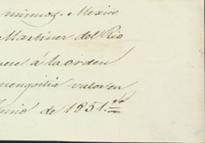 mismos. Mexico
Martinez del Rio
á la orden
valor en
Junio de 1851.